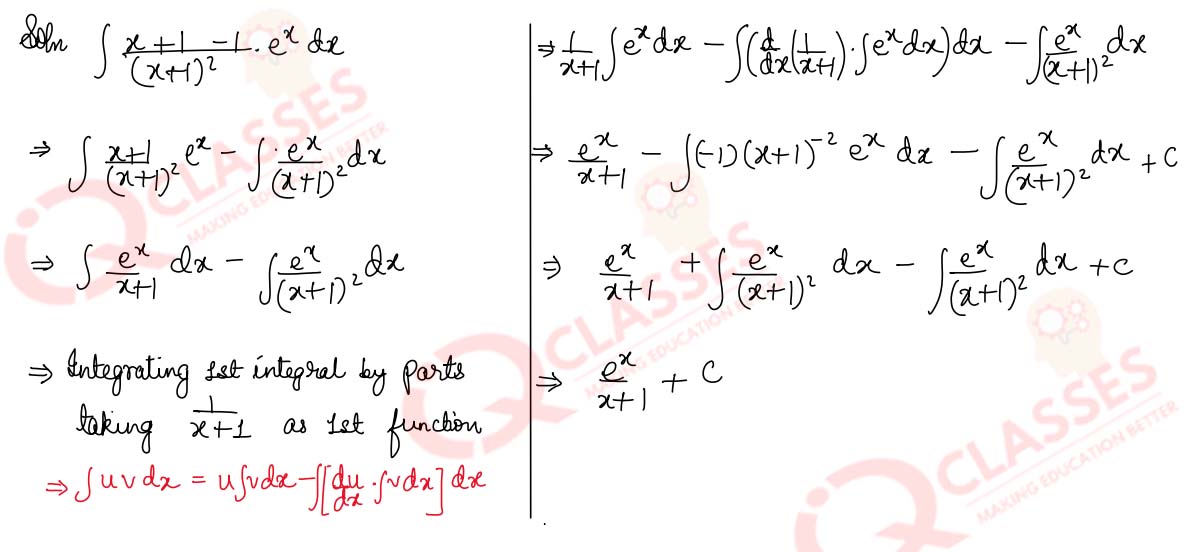 Soln ∫ (x+1-1)/(x+1)² · eˣ dx
⇒ ∫ (x+1)/(x+1)² eˣ - ∫ eˣ/(x+1)² dx
⇒ ∫ eˣ/(x+1) dx - ∫ eˣ/(x+1)² dx
⇒ Integrating 1st integral by parts
taking 1/(x+1) as 1st function
⇒ ∫ u v dx = u∫vdx - ∫[du/dx · ∫vdx] dx
⇒ 1/(x+1) ∫eˣdx - ∫(d/dx(1/(x+1)) · ∫eˣdx)dx - ∫ eˣ/(x+1)² dx
⇒ eˣ/(x+1) - ∫(-1)(x+1)⁻² eˣ dx - ∫ eˣ/(x+1)² dx + C
⇒ eˣ/(x+1) + ∫ eˣ/(x+1)² dx - ∫ eˣ/(x+1)² dx + C
⇒ eˣ/(x+1) + C
iQ CLASSES
MAKING EDUCATION BETTER
iQ CLASSES
MAKING EDUCATION BETTER
iQ CLASSES
MAKING EDUCATION BETTER